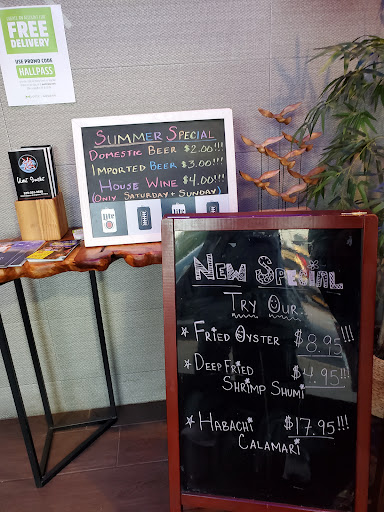 FREE
DELIVERY
USE PROMO CODE
HALLPASS
SUMMER SPECIAL
DOMESTIC BEER $2.00!!!
IMPORTED BEER $3.00!!!
HOUSE WINE $4.00!!!
(ONLY SATURDAY + SUNDAY)
Lite
NEW SPECIAL
TRY OUR..
* FRIED OYSTER $8.95!!!
* DEEP FRIED $4.95!!!
SHRIMP SHUMI
* HABACHI $17.95!!!
CALAMARI